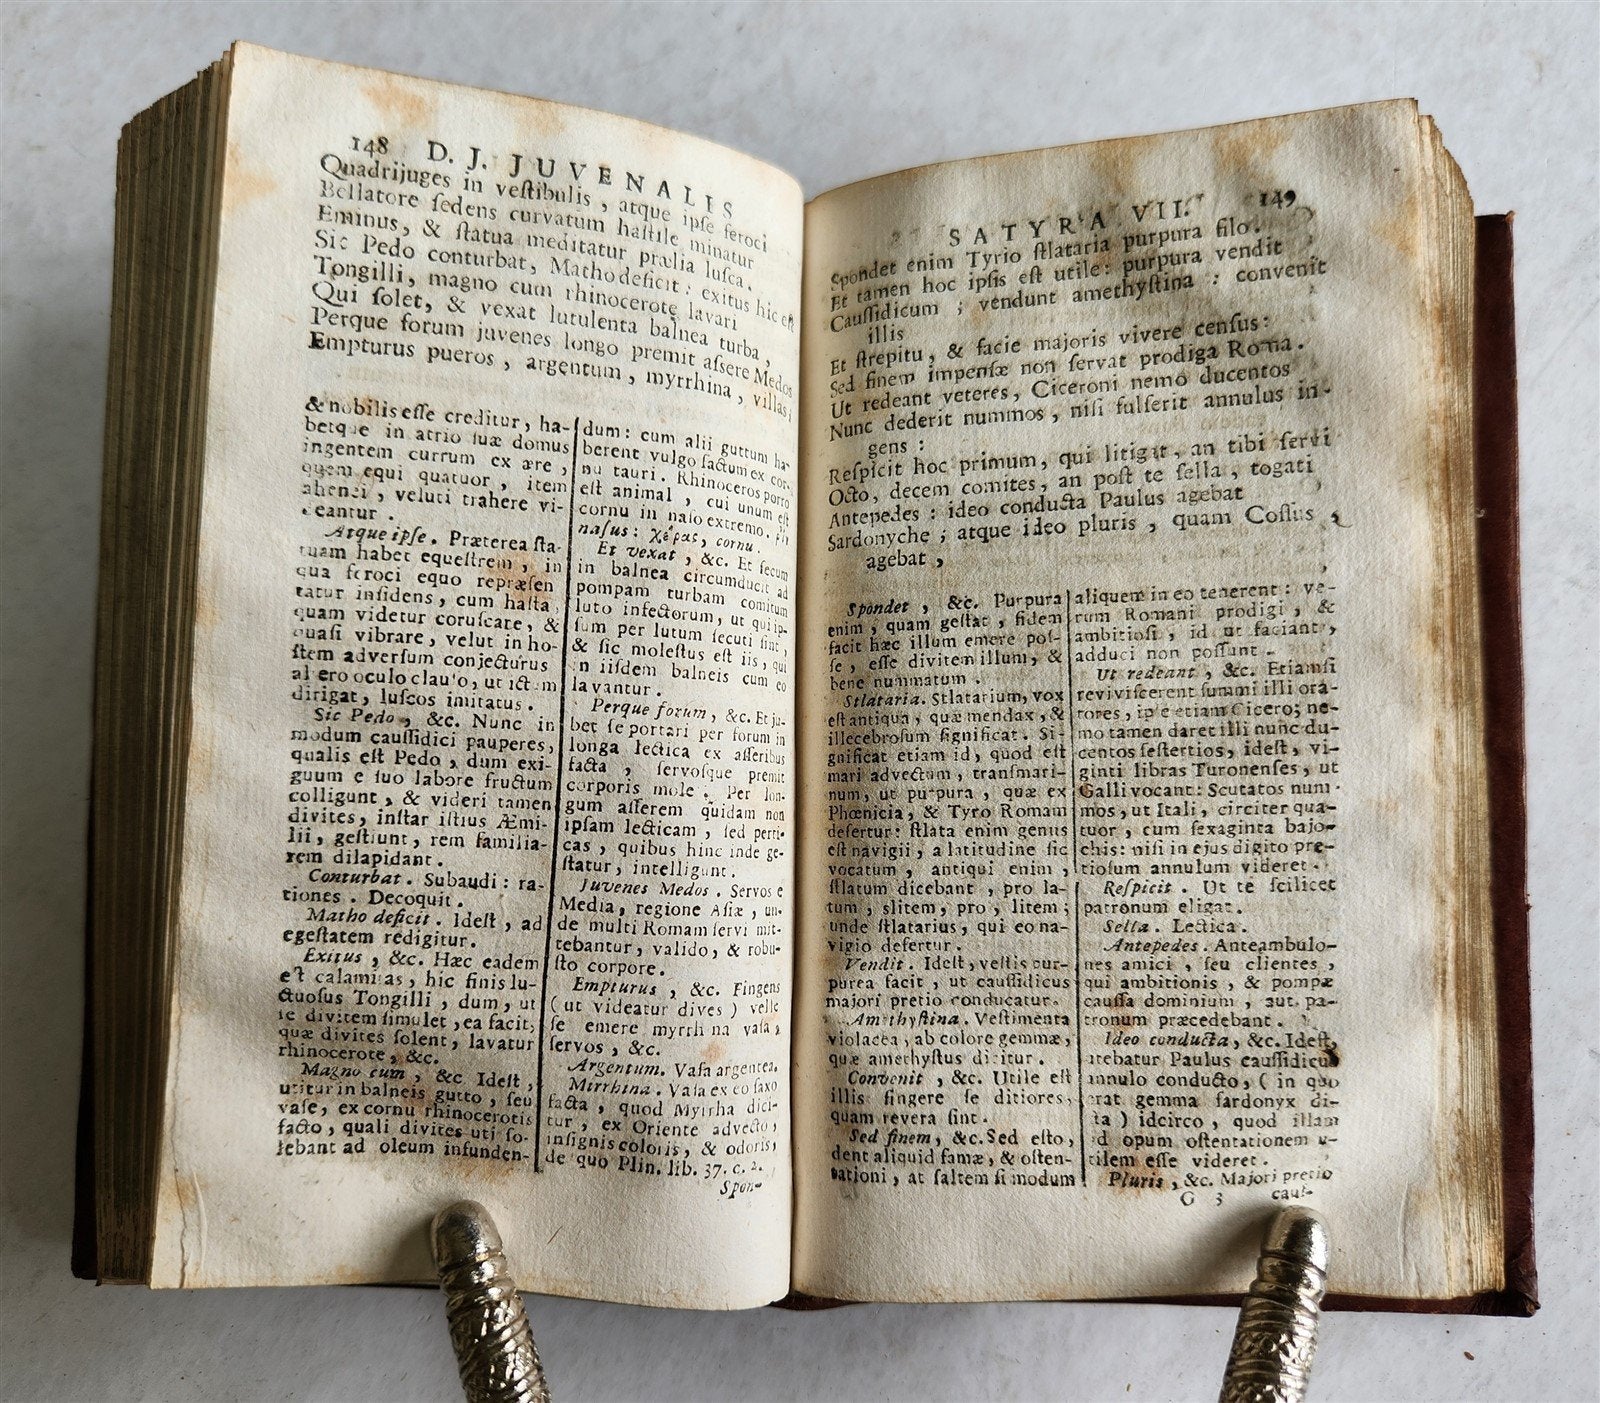 148 D. J. JUVENALIS
Quadrijuges in veſtibulis, atque ipſe feroci
Bellatore ſedens curvatum haſtile minatur
Eminus, & ſtatua meditatur prælia luſca.
Sic Pedo conturbat, Matho deficit: exitus hic eſt
Tongilli, magno cum rhinocerote lavari
Qui ſolet, & vexat lutulenta balnea turba,
Perque forum juvenes longo premit aſſere Medos
Empturus pueros, argentum, myrrhina, villas;
& nobilis eſſe creditur, ha-
betque in atrio ſuæ domus
ingentem currum ex ære,
quem equi quatuor, item
ahenei, veluti trahere vi-
deantur.
Atque ipſe. Præterea ſta-
tuam habet equeſtrem, in
qua feroci equo repræſen
tatur inſidens, cum haſta,
quam videtur coruſcare, &
quaſi vibrare, velut in ho-
ſtem adverſum conjecturus
altero oculo clauſo, ut ictum
dirigat, luſcos imitatus.
Sic Pedo, &c. Nunc in
modum cauſſidici pauperes,
qualis eſt Pedo, dum exi-
guum e ſuo labore fructum
colligunt, & videri tamen
divites, inſtar iſtius Æmi-
lii, geſtiunt, rem familia-
rem dilapidant.
Conturbat. Subaudi: ra-
tiones. Decoquit.
Matho deficit. Ideſt, ad
egeſtatem redigitur.
Exitus, &c. Hæc eadem
eſt calamitas, hic finis lu-
ctuoſus Tongilli, dum, ut
ſe divitem ſimulet, ea facit,
quæ divites ſolent, lavatur
rhinocerote, &c.
Magno cum, &c Ideſt,
utitur in balneis gutto, ſeu
vaſe, ex cornu rhinocerotis
facto, quali divites uti ſo-
lebant ad oleum infunden-
dum: cum alii guttum ha-
berent vulgo factum ex cor-
nu tauri. Rhinoceros porro
eſt animal, cui unum eſt
cornu in naſo extremo. ῥὶν
naſus: χέρας, cornu.
Et vexat, &c. Et ſecum
in balnea circumducit ad
pompam turbam comitum
luto infectorum, ut qui ip-
ſum per lutum ſecuti ſint,
& ſic moleſtus eſt iis, qui
in iiſdem balneis cum eo
lavantur.
Perque forum, &c. Et ju-
bet ſe portari per forum in
longa lectica ex aſſeribus
facta, ſervoſque premit
corporis mole. Per lon-
gum aſſerem quidam non
ipſam lecticam, ſed perti-
cas, quibus hinc inde ge-
ſtatur, intelligunt.
Juvenes Medos. Servos e
Media, regione Aſiæ, un-
de multi Romam ſervi mit-
tebantur, valido, & robu-
ſto corpore.
Empturus, &c. Fingens
(ut videatur dives) velle
ſe emere myrrhina vaſa,
ſervos, &c.
Argentum. Vaſa argentea.
Mirrhina. Vaſa ex eo ſaxo
facta, quod Myrrha dici-
tur, ex Oriente advecto,
inſignis coloris, & odoris,
de quo Plin. lib. 37. c. 2.
Spon-
SATYRA VII. 149
Spondet enim Tyrio ſtlataria purpura filo.
Et tamen hoc ipſis eſt utile: purpura vendit
Cauſſidicum; vendunt amethyſtina: convenit
illis
Et ſtrepitu, & facie majoris vivere cenſus:
Sed finem impenſæ non ſervat prodiga Roma.
Ut redeant veteres, Ciceroni nemo ducentos
Nunc dederit nummos, niſi fulſerit annulus in-
gens:
Reſpicit hoc primum, qui litigat, an tibi ſervi
Octo, decem comites, an poſt te ſella, togati
Antepedes: ideo conducta Paulus agebat
Sardonyche; atque ideo pluris, quam Coſſus,
agebat,
Spondet, &c. Purpura
enim, quam geſtat, fidem
facit hæc illum emere poſ-
ſe, eſſe divitem illum, &
bene nummatum.
Stlataria. Stlatarium, vox
eſt antiqua, quæ mendax, &
illecebroſum ſignificat. Si-
gnificat etiam id, quod eſt
mari advectum, tranſmari-
num, ut purpura, quæ ex
Phœnicia, & Tyro Romam
defertur: ſtlata enim genus
eſt navigii, a latitudine ſic
vocatum, antiqui enim,
ſtlatum dicebant, pro la-
tum, ſlitem, pro, litem;
unde ſtlatarius, qui eo na-
vigio defertur.
Vendit. Ideſt, veſtis pur-
purea facit, ut cauſſidicus
majori pretio conducatur.
Amethyſtina. Veſtimenta
violacea, ab colore gemmæ,
quæ amethyſtus dicitur.
Convenit, &c. Utile eſt
illis fingere ſe ditiores,
quam revera ſint.
Sed finem, &c. Sed eſto,
dent aliquid famæ, & oſten-
tationi, at ſaltem ſi modum
aliquem in eo tenerent: ve-
rum Romani prodigi, &
ambitioſi, id ut faciant,
adduci non poſſunt.
Ut redeant, &c. Etiamſi
reviviſcerent ſummi illi ora-
tores, ipſe etiam Cicero; ne-
mo tamen daret illi nunc du-
centos ſeſtertios, ideſt, vi-
ginti libras Turonenſes, ut
Galli vocant: Scutatos num-
mos, ut Itali, circiter qua-
tuor, cum ſexaginta bajo-
chis: niſi in ejus digito pre-
tioſum annulum videret.
Reſpicit. Ut te ſcilicet
patronum eligat.
Sella. Lectica.
Antepedes. Anteambulo-
nes amici, ſeu clientes,
qui ambitionis, & pompæ
cauſſa dominium, aut pa-
tronum præcedebant.
Ideo conducta, &c. Ideſt,
utebatur Paulus cauſſidicus
annulo conducto, (in quo
erat gemma ſardonyx di-
cta) idcirco, quod illam
ad opum oſtentationem u-
tilem eſſe videret.
Pluris, &c. Majori pretio
G 3 cauſ-